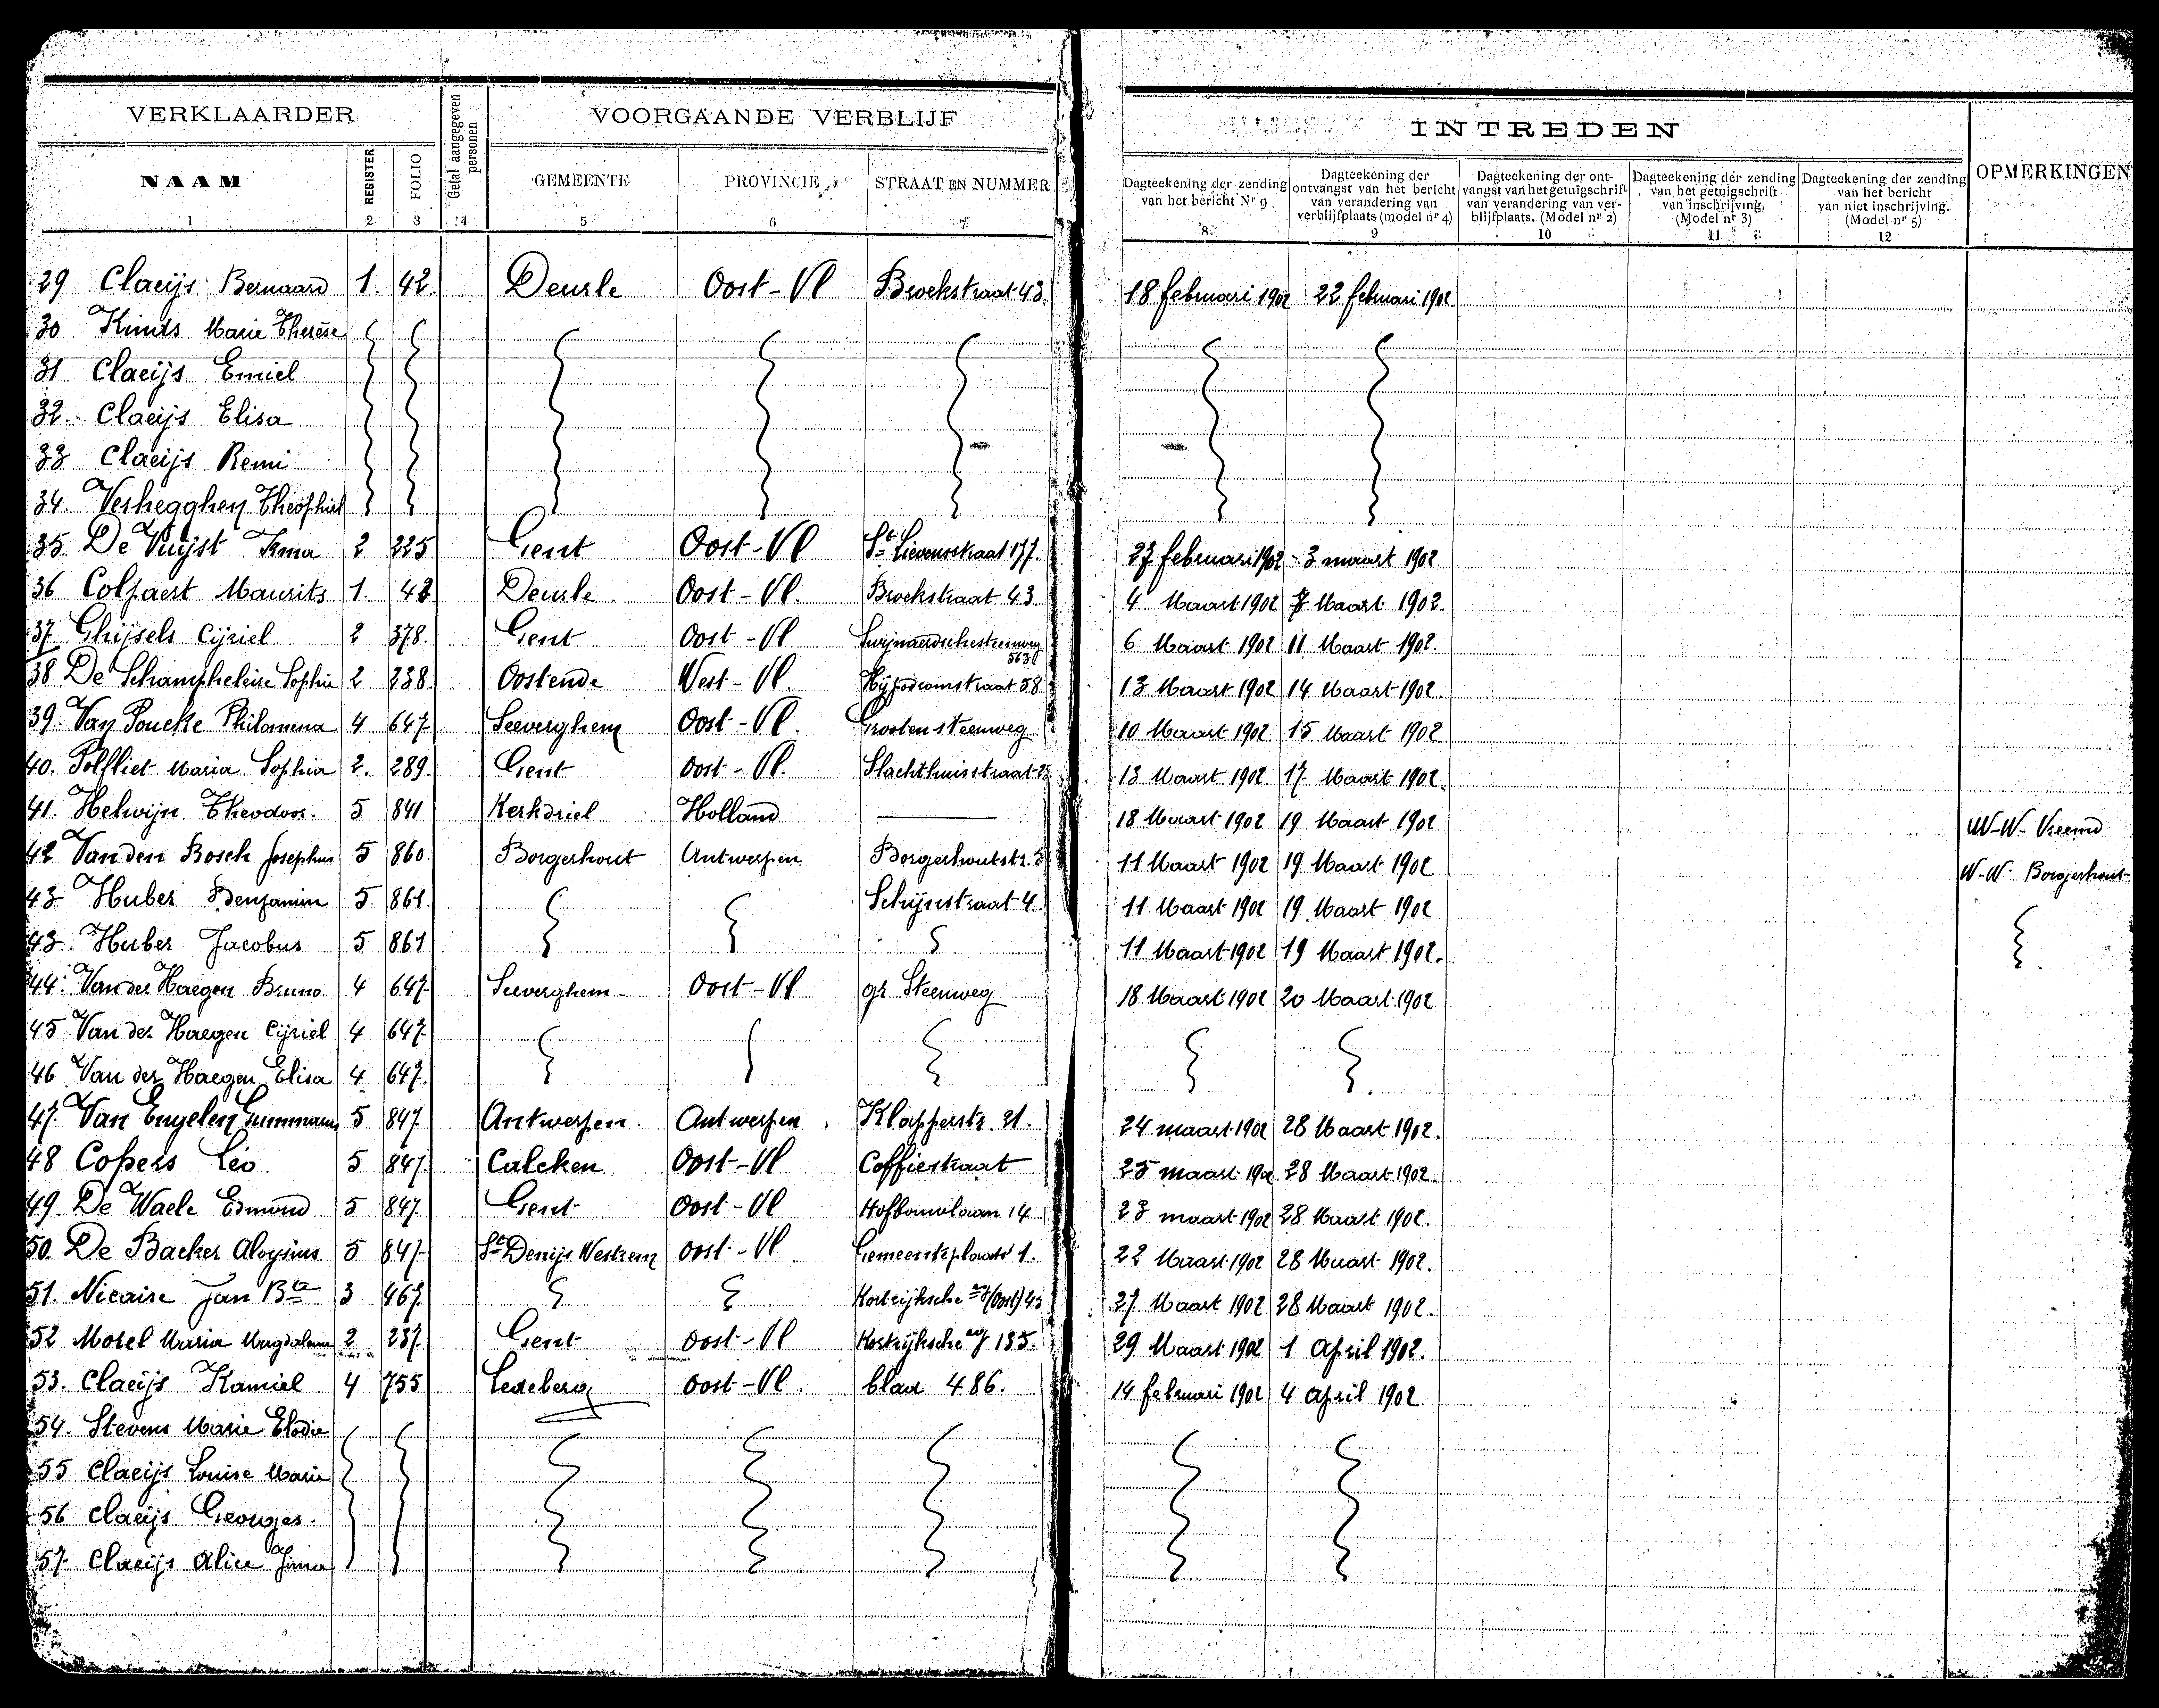 VERKLAARDER
Getal aangegeven personen
VOORGAANDE VERBLIJF
INTREDEN
OPMERKINGEN
NAAM REGISTER FOLIO GEMEENTE PROVINCIE STRAAT EN NUMMER
Dagteekening der zending van het bericht Nr 9
Dagteekening der ontvangst van het bericht van verandering van verblijfplaats (model nr 4)
Dagteekening der ontvangst van het getuigschrift van verandering van verblijfplaats. (Model nr 2)
Dagteekening der zending van het getuigschrift van inschrijving. (Model nr 3)
Dagteekening der zending van het bericht van niet inschrijving. (Model nr 5)
1 2 3 4 5 6 7 8 9 10 11 12
29 Claeijs Bernaard 1. 42. Deurle Oost-Vl Broekstraat 43. 18 februari 1902 22 februari 1902
30 Kints Marie Therèse
31 Claeijs Emiel
32. Claeijs Elisa
33 Claeijs Remi
34. Verhegghen Theophiel
35 De Vuijst Irma 2 225 Gent Oost-Vl St Lievensstraat 177. 27 februari 1902 3 maart 1902.
36 Colpaert Maurits 1. 42 Deurle Oost-Vl. Broekstraat 43 4 Maart 1902 7 Maart 1902.
37 Ghijsels Cijriel 2 378. Gent Oost-Vl Swijnaerdschesteenweg 563 6 Maart 1902 11 Maart 1902.
38 De Schampheleire Sophie 2 238. Oostende West-Vl. Hijpodroomstraat 58 13 Maart 1902 14 Maart 1902.
39. Van Poucke Philomena 4 647. Seeverghem Oost-Vl. Grooten steenweg 10 Maart 1902 15 Maart 1902
40. Polfliet Maria Sophia 2. 289. Gent Oost-Vl. Slachthuisstraat 13 Maart 1902 17 Maart 1902.
41. Helwijn Theodoor. 5 841 Kerkdriel Holland — 18 Maart 1902 19 Maart 1902 W-W- Vreemd
42 Van den Bosch Josephus 5 860. Borgerhout Antwerpen Borgerhoutstr. 11 Maart 1902 19 Maart 1902 W-W- Borgerhout
43 Huber Benjamin 5 861. Schijnstraat 4 11 Maart 1902 19 Maart 1902
43. Huber Jacobus 5 861 11 Maart 1902 19 Maart 1902.
44. Van der Haegen Bruno 4 647 Seeverghem Oost-Vl gr. Steenweg 18 Maart 1902 20 Maart 1902
45 Van der Haegen Cijriel 4 647
46 Van der Haegen Elisa 4 647.
47. Van Engelen 5 847. Antwerpen. Antwerpen. Klapperstr. 21. 24 maart 1902 28 Maart 1902.
48 Copers Léo 5 847. Calcken Oost-Vl Coffiestraat 25 maart 1902 28 Maart 1902.
49. De Waele Edmond 5 847. Gent Oost-Vl Hofbouwlaan 14 23 maart 1902 28 Maart 1902.
50 De Backer Aloysius 5 847. St Denijs Westrem Oost-Vl Gemeenteplaats 1. 22 Maart 1902 28 Maart 1902.
51. Nicaise Jan Bte 3 467. Kortrijksche (Oost) 43 27 Maart 1902 28 Maart 1902.
52 Morel Maria Magdalena 2 237. Gent Oost-Vl Kortrijksche 135. 29 Maart 1902 1 April 1902.
53. Claeijs Kamiel 4 755 Ledeberg Oost-Vl. blad 486. 14 februari 1902 4 April 1902.
54. Stevens Marie Elodie
55 Claeijs Louise Marie
56 Claeijs Georges.
57. Claeijs Alice Irma